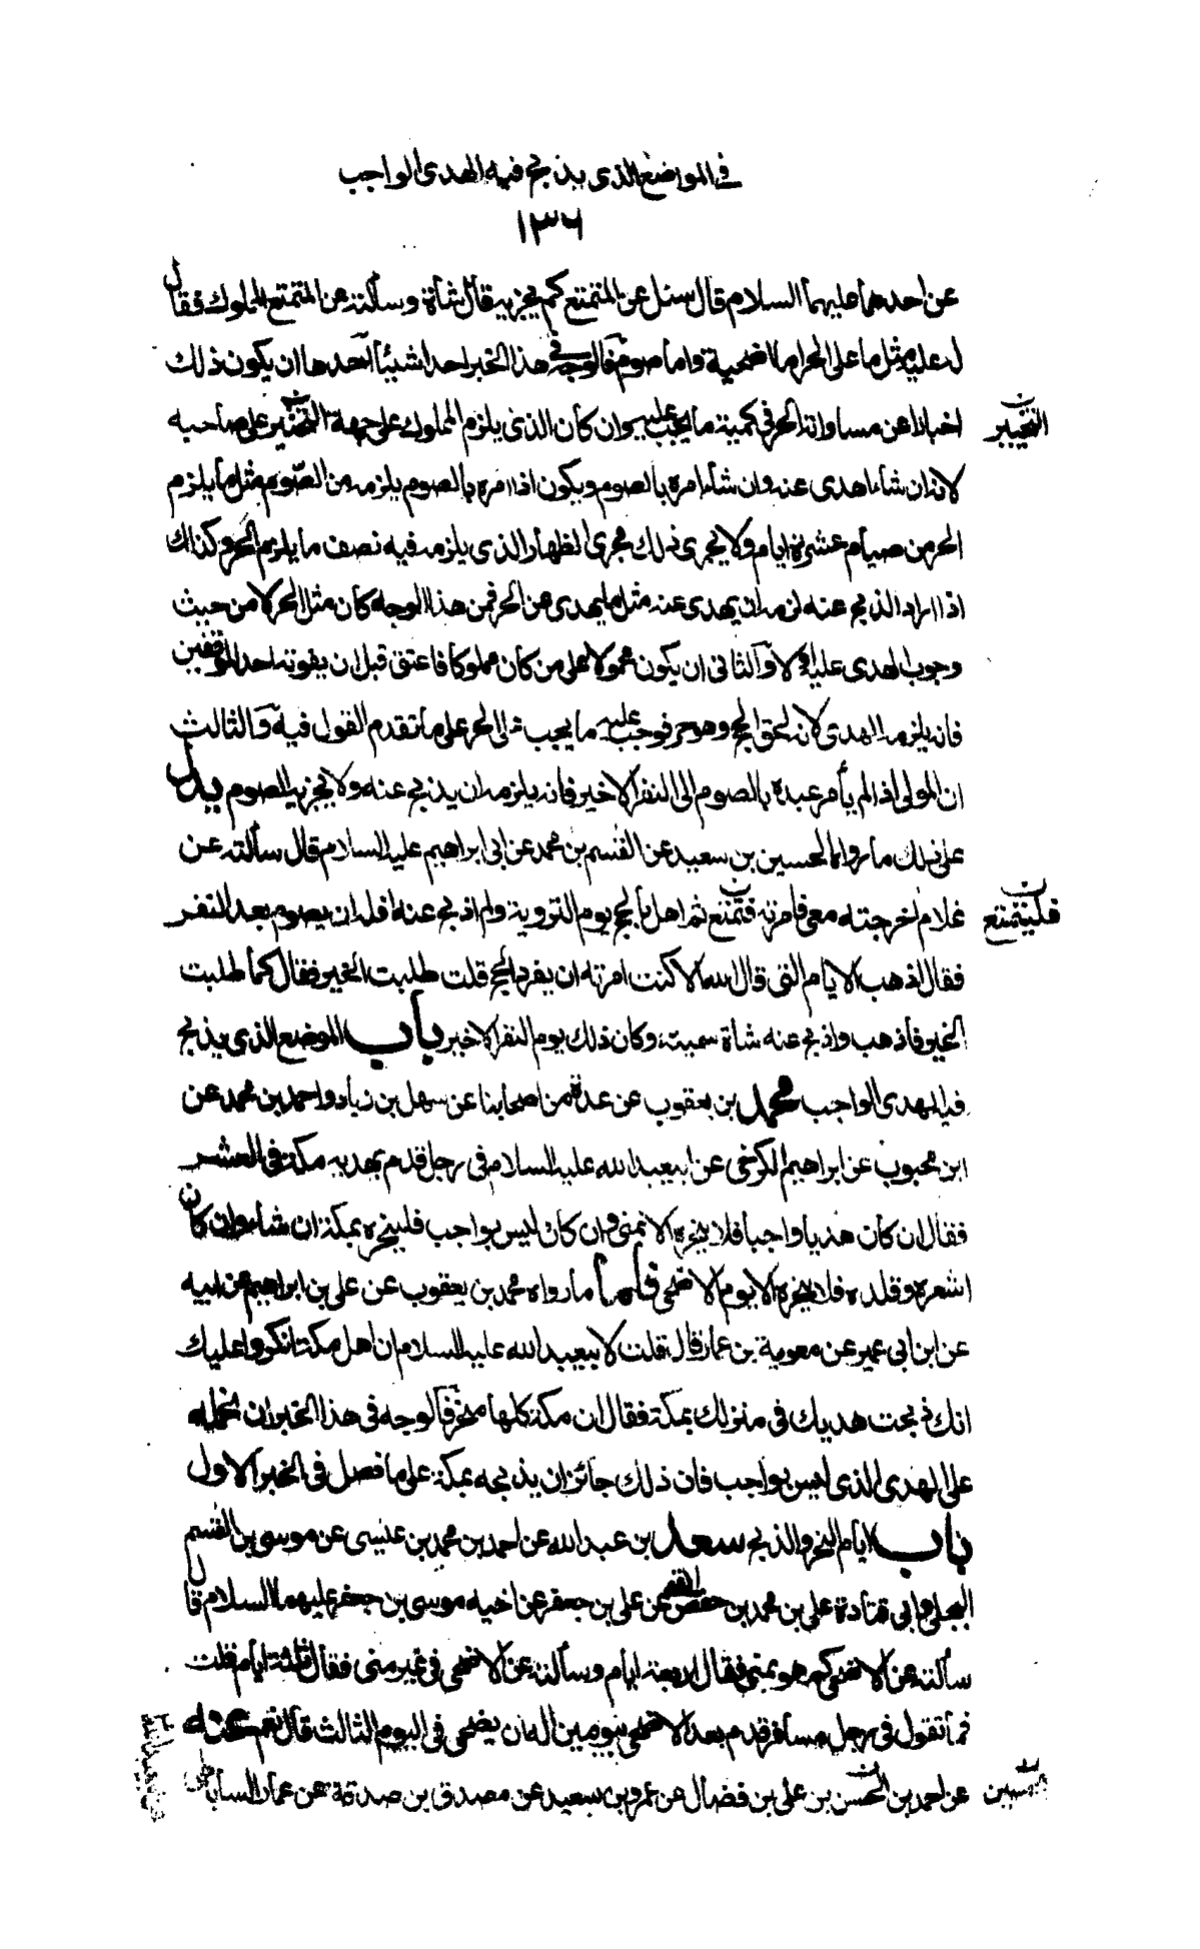 في المواضع الذى يذبح فيه الهدى الواجب
١٣٦
عن احدهما عليهما السلام قال سئل عن المتمتع كم يجزيه قال شاة وسألته عن المتمتع المملوك فقال
له عليه مثل ما على الحر اما اضحية واما صوم فالوجه في هذا الخبر احد اشياء احدها ان يكون ذلك
اخبارا عن مساواته الحر في كمية ما يجب عليه وان كان الذى يلزم المملوك على جهة التخيير على صاحبه
التخيير
لانه ان شاء اهدى عنه وان شاء امره بالصوم ويكون اذا امره بالصوم يلزمه من الصوم مثل ما يلزم
الحر من صيام عشرة ايام ولا يجرى ذلك مجرى الظهار الذى يلزمه فيه نصف ما يلزم الحر وكذلك
اذا اراد الذبح عنه لزمه ان يهدى عنه مثل ما يهدى عن الحر فمن هذا الوجه كان مثل الحر لا من حيث
وجوب الهدى عليه اولا والثانى ان يكون محمولا على من كان مملوكا فاعتق قبل ان يفوته احد الموقفين
فانه يلزمه الهدى لانه لحق الحج وهو حر فوجب عليه ما يجب على الحر على ما تقدم القول فيه والثالث
ان المولى اذا لم يأمر عبده بالصوم الى النفر الاخير فانه يلزمه ان يذبح عنه ولا يجزيه الصوم يدل
على ذلك ما رواه الحسين بن سعيد عن القسم بن محمد عن ابى ابراهيم عليه السلام قال سألته عن
غلام اخرجته معى فامرته فتمتع ثم اهل بالحج يوم التروية ولم اذبح عنه افله ان يصوم بعد النفر
فليتمتع
فقال اذهب الايام التى قال الله الا كنت امرته ان يفرد الحج قلت طلبت الخير فقال كما طلبت
الخير فاذهب واذبح عنه شاة سمينة وكان ذلك يوم النفر الاخير باب الموضع الذى يذبح
فيه الهدى الواجب محمد بن يعقوب عن عدة من اصحابنا عن سهل بن زياد واحمد بن محمد عن
ابن محبوب عن ابراهيم الكرخى عن ابيعبدالله عليه السلام فى رجل قدم بهديه مكة فى العشر
فقال ان كان هديا واجبا فلا ينحره الا بمنى وان كان ليس بواجب فلينحره بمكة ان شاء وان كان
اشعره وقلده فلا ينحره الا يوم الاضحى فاما ما رواه محمد بن يعقوب عن على بن ابراهيم عن ابيه
عن ابن ابى عمير عن معوية بن عمار قال قلت لابيعبدالله عليه السلام ان اهل مكة انكروا عليك
انك ذبحت هديك فى منزلك بمكة فقال ان مكة كلها منحر فالوجه فى هذا الخبر ان نحمله
على الهدى الذى ليس بواجب فان ذلك جائز ان يذبحه بمكة على ما فصل فى الخبر الاول
باب ايام النحر والذبح سعد بن عبد الله عن احمد بن محمد بن عيسى عن موسى بن القسم
البجلى وابى قتادة على بن محمد بن حفص القمى عن على بن جعفر عن اخيه موسى بن جعفر عليهما السلام قال
سألته عن الاضحى كم هو بمنى فقال اربعة ايام وسألته عن الاضحى فى غير منى فقال ثلثة ايام فقلت
فما تقول فى رجل مسافر قدم بعد الاضحى بيومين اله ان يضحى فى اليوم الثالث قال نعم عنه
عن احمد بن الحسن بن على بن فضال عن عمرو بن سعيد عن مصدق بن صدقة عن عمار الساباطى
الحسين